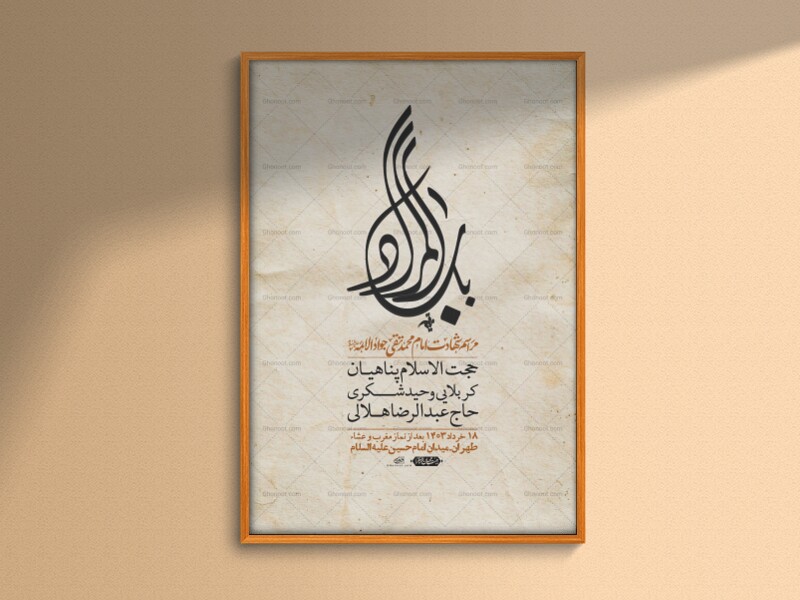 باب المراد
مراسم شهادت امام محمد تقی جواد الائمه
حجت الاسلام پناهیان
کربلایی وحید شکری
حاج عبدالرضا هلالی
۱۸ خرداد ۱۴۰۳ بعد از نماز مغرب و عشاء
طهران، میدان امام حسین علیه السلام
Ghonoot.com